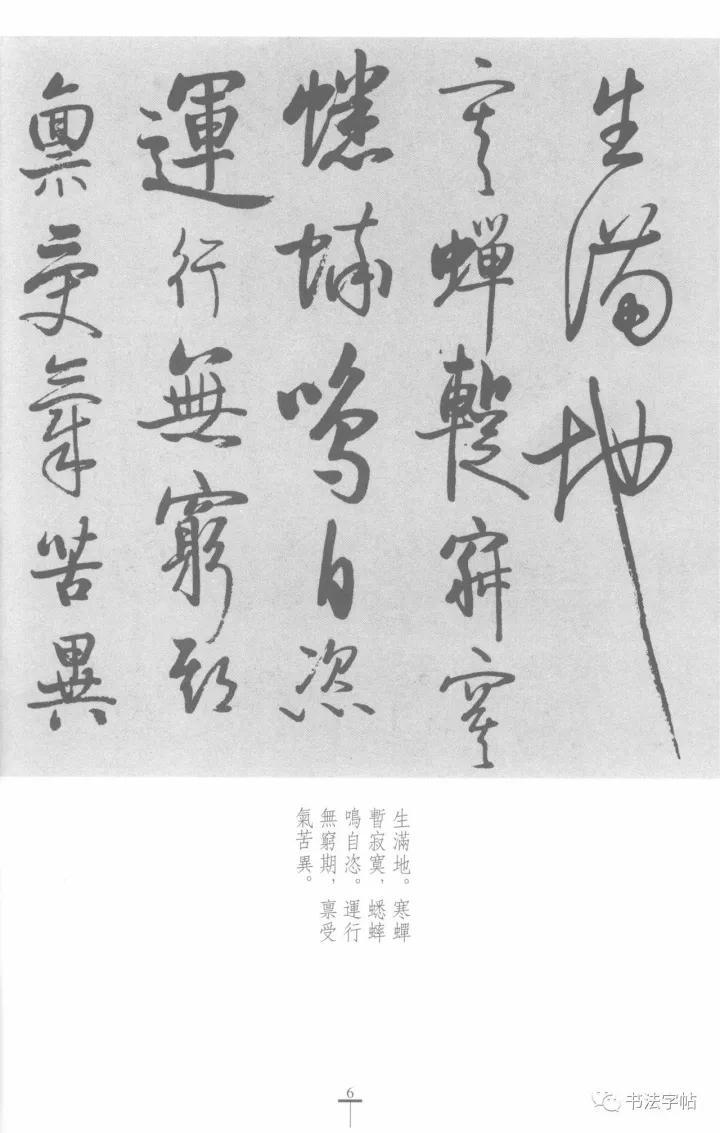 生滿地
寒蟬暫寂寞
蟋蟀鳴自恣
運行無窮期
稟受氣苦異
生滿地。寒蟬
暫寂寞，蟋蟀
鳴自恣。運行
無窮期，稟受
氣苦異。
6
书法字帖